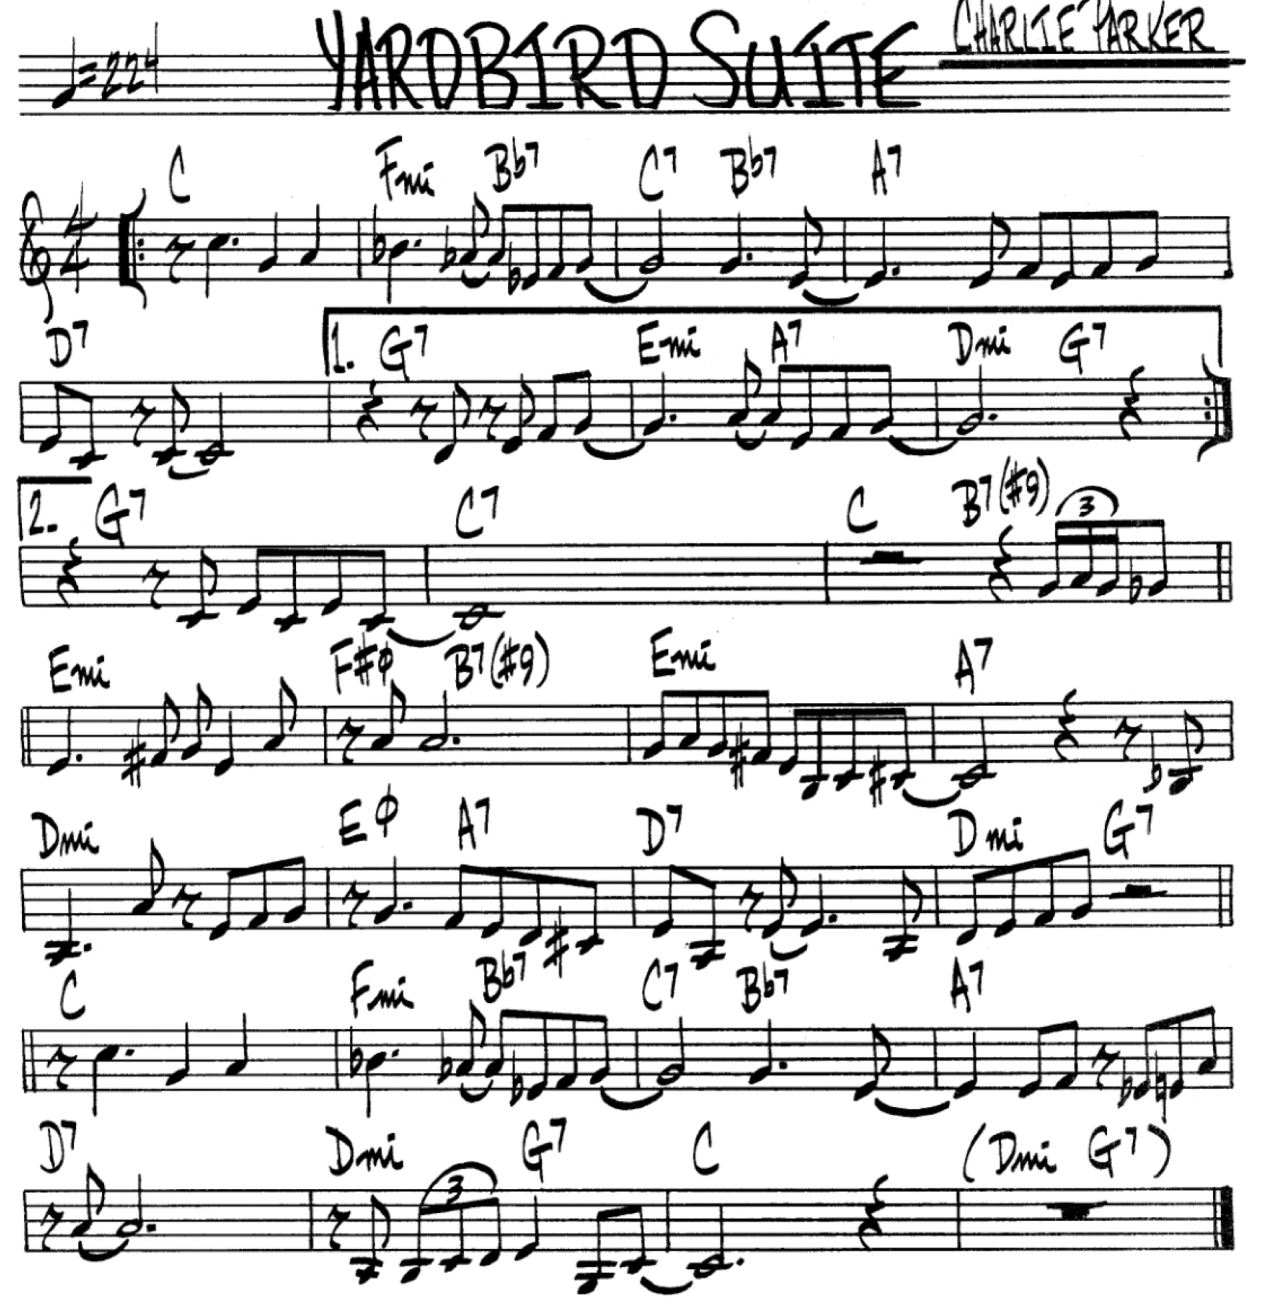 ♩=224 YARDBIRD SUITE CHARLIE PARKER
C Fmi Bb7 C7 Bb7 A7
4/4
D7 1. G7 Emi A7 Dmi G7
2. G7 C7 C B7(#9)
3
Emi F#ø B7(#9) Emi A7
Dmi Eø A7 D7 Dmi G7
C Fmi Bb7 C7 Bb7 A7
D7 Dmi G7 C (Dmi G7)
3